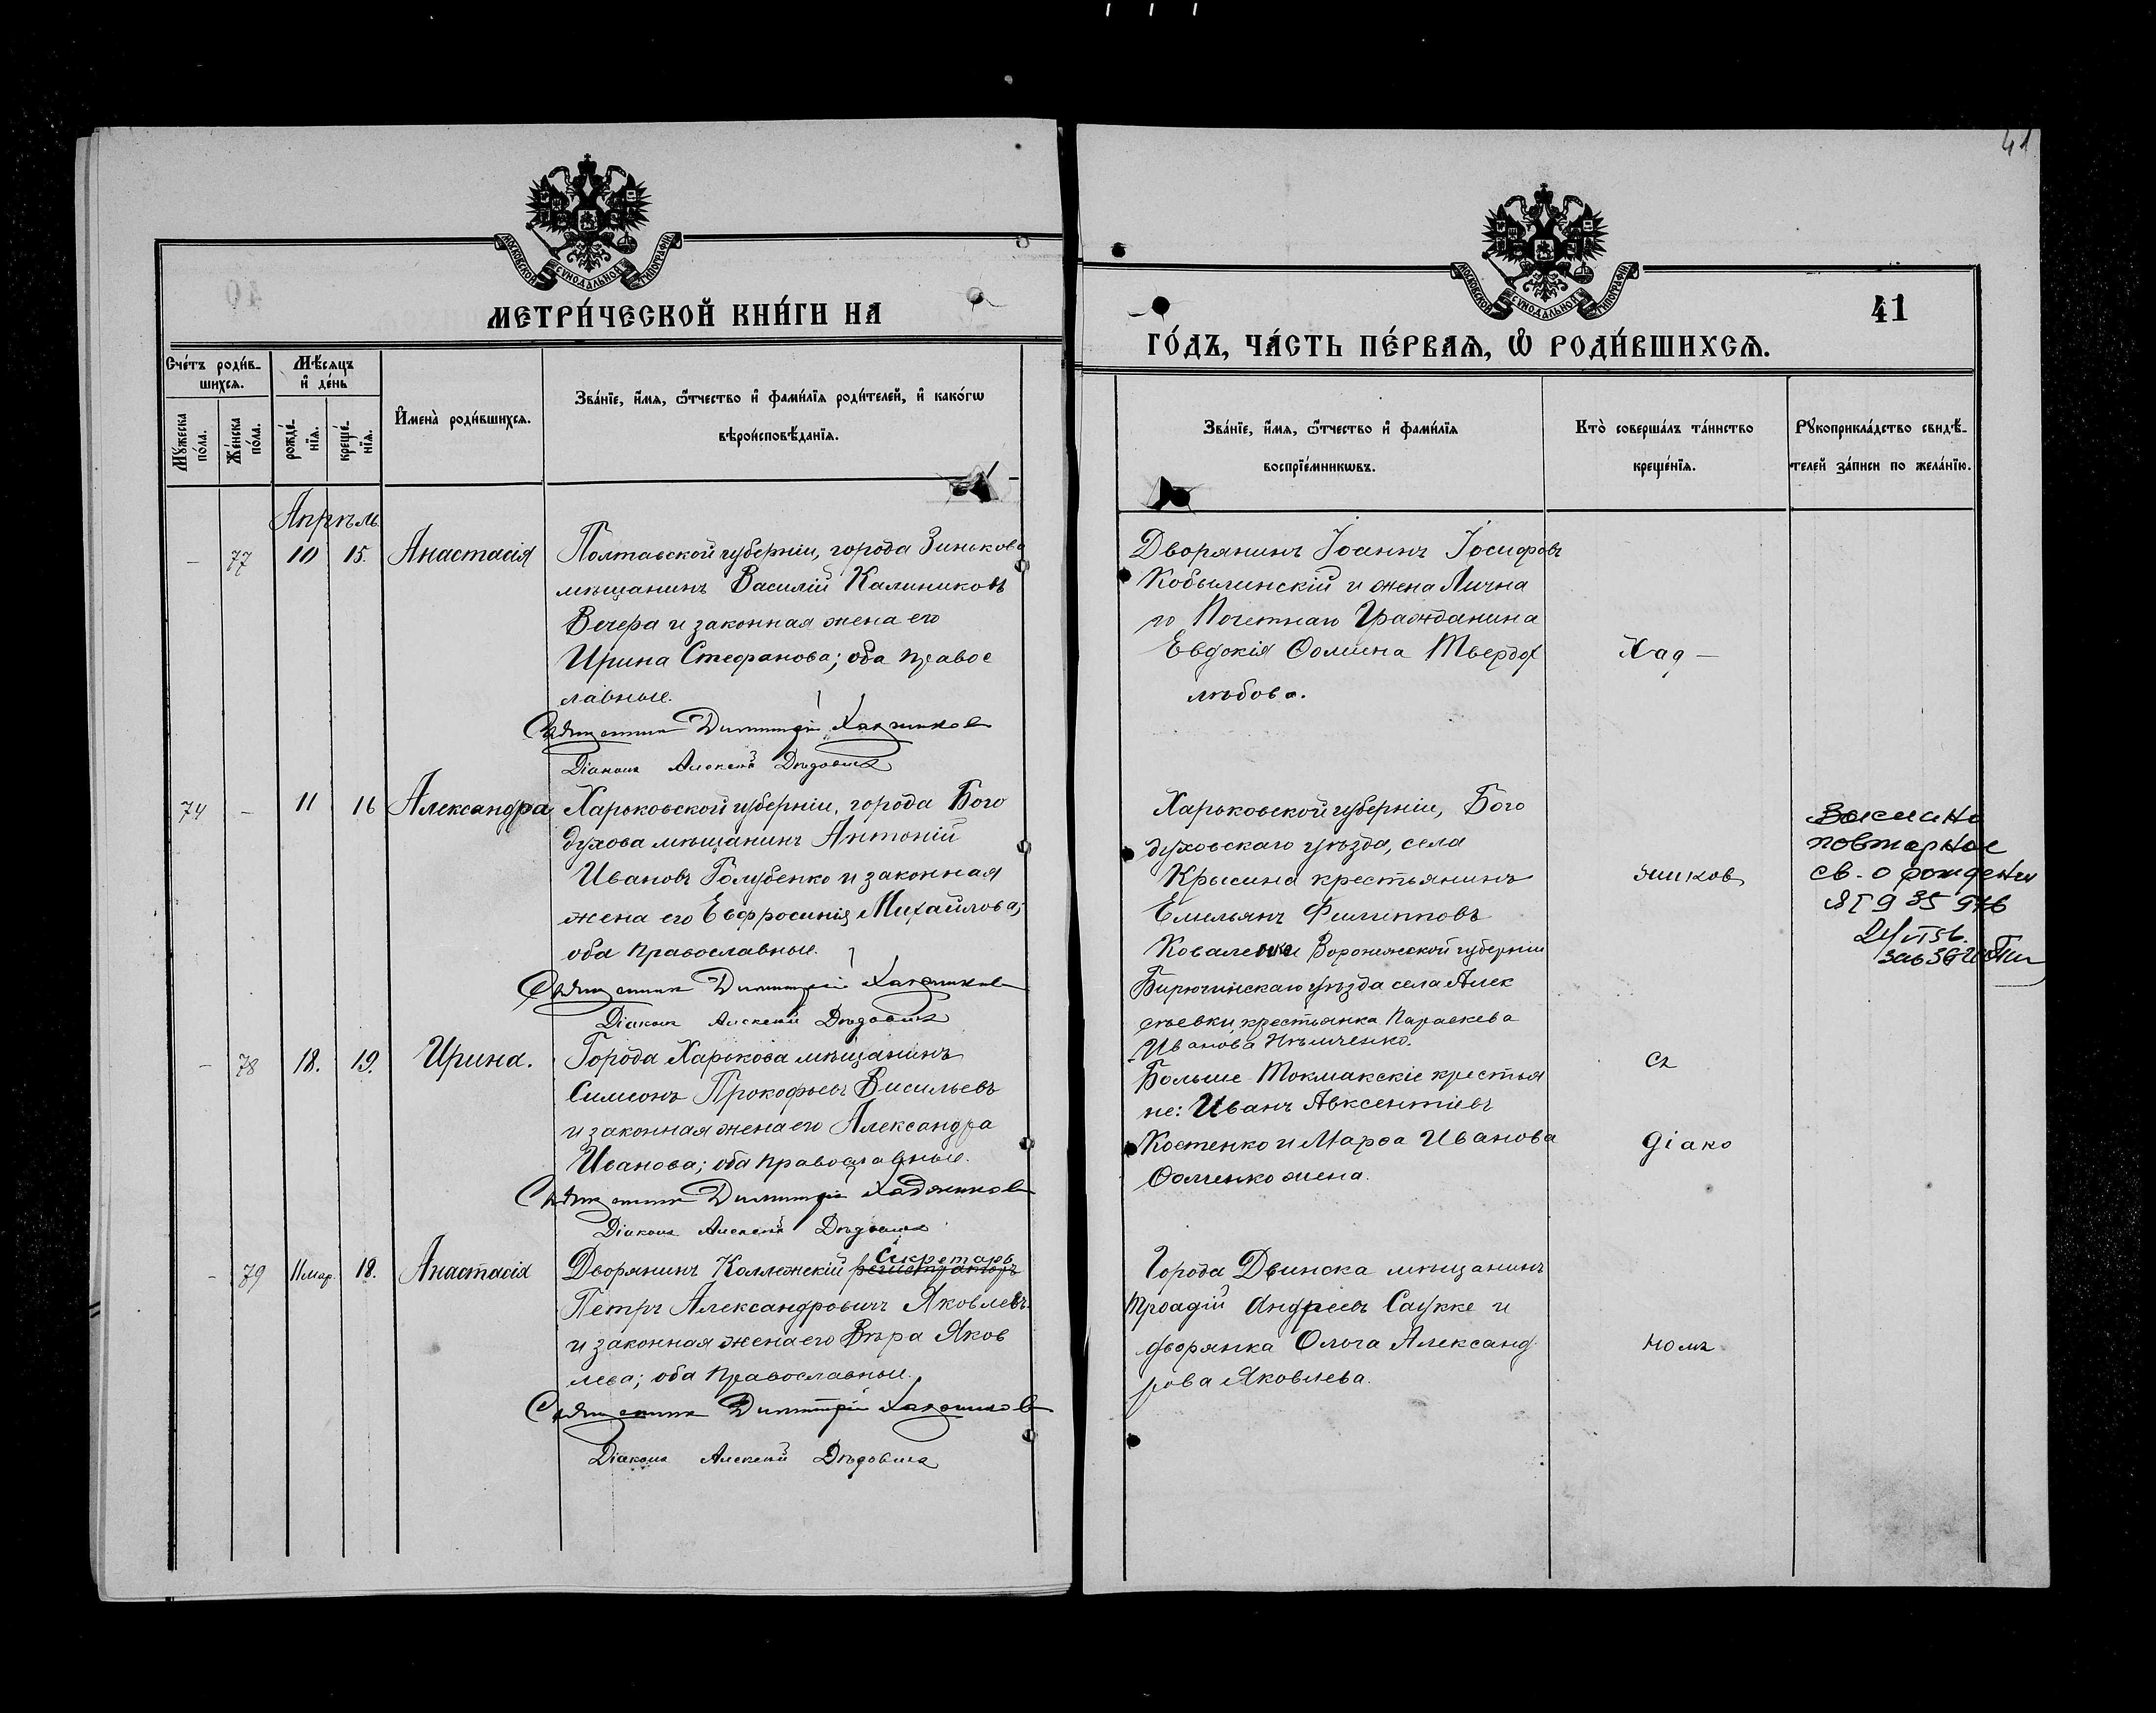 41
МОСКОВСКОЙ СѴНОДАЛЬНОЙ ТИПОГРАФІИ
МЕТРИ́ЧЕСКОЙ КНИ́ГИ НА
Сче́тъ роди́в-
шихсѧ.
Мѣ́сѧцъ
и҆ де́нь
Мꙋ́жеска
по́ла.
Же́нска
по́ла.
рожде́-
нїѧ.
креще́-
нїѧ.
И҆мена̀ роди́вшихсѧ.
Зва́нїе, и҆́мѧ, ѻ҆́тчество и҆ фами́лїѧ роди́телей, и҆ како́гѡ
вѣроисповѣ́данїѧ.
Апрѣль.
- 77 10 15. Анастасія
Полтавской губерніи, города Зинькова
мѣщанинъ Василій Калиниковъ
Вечера и законная жена его
Ирина Стефанова; оба правос
лавные.
Священникъ Димитрій Хаджиновъ
Діаконъ Алексѣй Дѣдовичъ
74 - 11 16 Александра
Харьковской губерніи, города Бого
духова мѣщанинъ Антоній
Ивановъ Голубенко и законная
жена его Евфросинія Михайлова;
оба православные.
Священникъ Димитрій Хаджиновъ
Діаконъ Алексѣй Дѣдовичъ
- 78 18. 19. Ирина.
Города Харькова мѣщанинъ
Симеонъ Прокофьевъ Васильевъ
и законная жена его Александра
Иванова; оба православные.
Священникъ Димитрій Хаджиновъ
Діаконъ Алексѣй Дѣдовичъ
- 79 11 мар. 18. Анастасія
Секретарь
Дворянинъ Коллежскій регистраторъ
Петръ Александровичъ Яковлевъ
и законная жена его Вѣра Яков
лева; оба православные.
Священникъ Димитрій Хаджиновъ
Діаконъ Алексѣй Дѣдовичъ
МОСКОВСКОЙ СѴНОДАЛЬНОЙ ТИПОГРАФІИ
41
ГО́ДЪ, ЧА́СТЬ ПЕ́РВАѦ, Ѡ҆ РОДИ́ВШИХСѦ.
Зва́нїе, и҆́мѧ, ѻ҆́тчество и҆ фами́лїѧ
воспрїе́мникѡвъ.
Кто̀ соверша́лъ та́инство
креще́нїѧ.
Рꙋкоприкла́дство свидѣ́-
телей за́писи по жела́нїю.
Дворянинъ Іоаннъ Іосифовъ
Кобылинскій и жена Лична
го Почетнаго Гражданина
Евдокія Ѳомина Твердох
лѣбова.
Харьковской губерніи, Бого
духовскаго уѣзда, села
Крысина крестьянинъ
Емельянъ Филипповъ
Коваленко и Воронежской губерніи
Бирючинскаго уѣзда села Алек
сѣевки, крестьянка Параскева
Иванова Нѣмченко.
Больше-Токмакскіе крестья
не: Иванъ Авксентіевъ
Костенко и Марѳа Иванова
Ѳоменко жена.
Города Двинска мѣщанинъ
Троадій Андреевъ Саукке и
дворянка Ольга Александ
рова Яковлева.
Хад-
жинов
съ
діако
номъ
повторное
св. о рожден